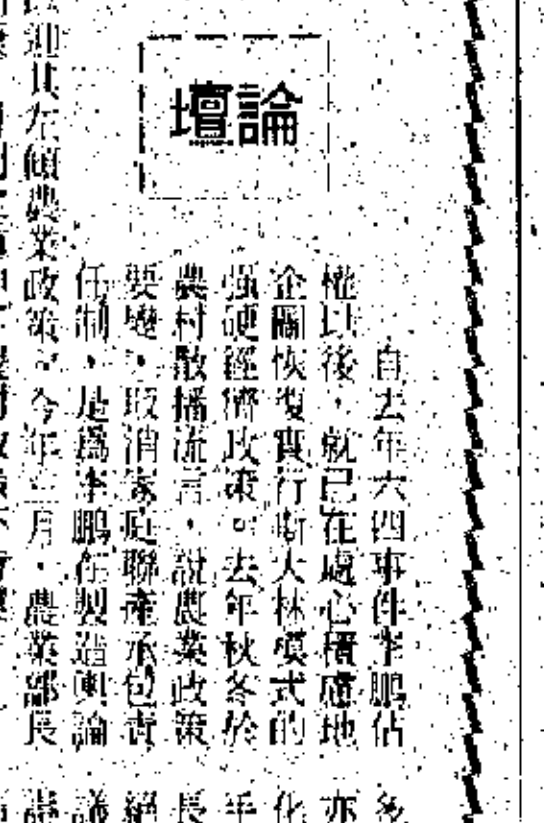 論壇
自去年六四事件李鵬佔
權以後，就已在處心積慮地
企圖恢復實行斯大林模式的
强硬經濟政策。去年秋冬於
農村散播流言，說農業政策
要變，取消家庭聯產承包責
任制，是爲李鵬在製造輿論
迎其左傾農業政策。今年三月，農業部長
多
亦
化
手
長
絕
議